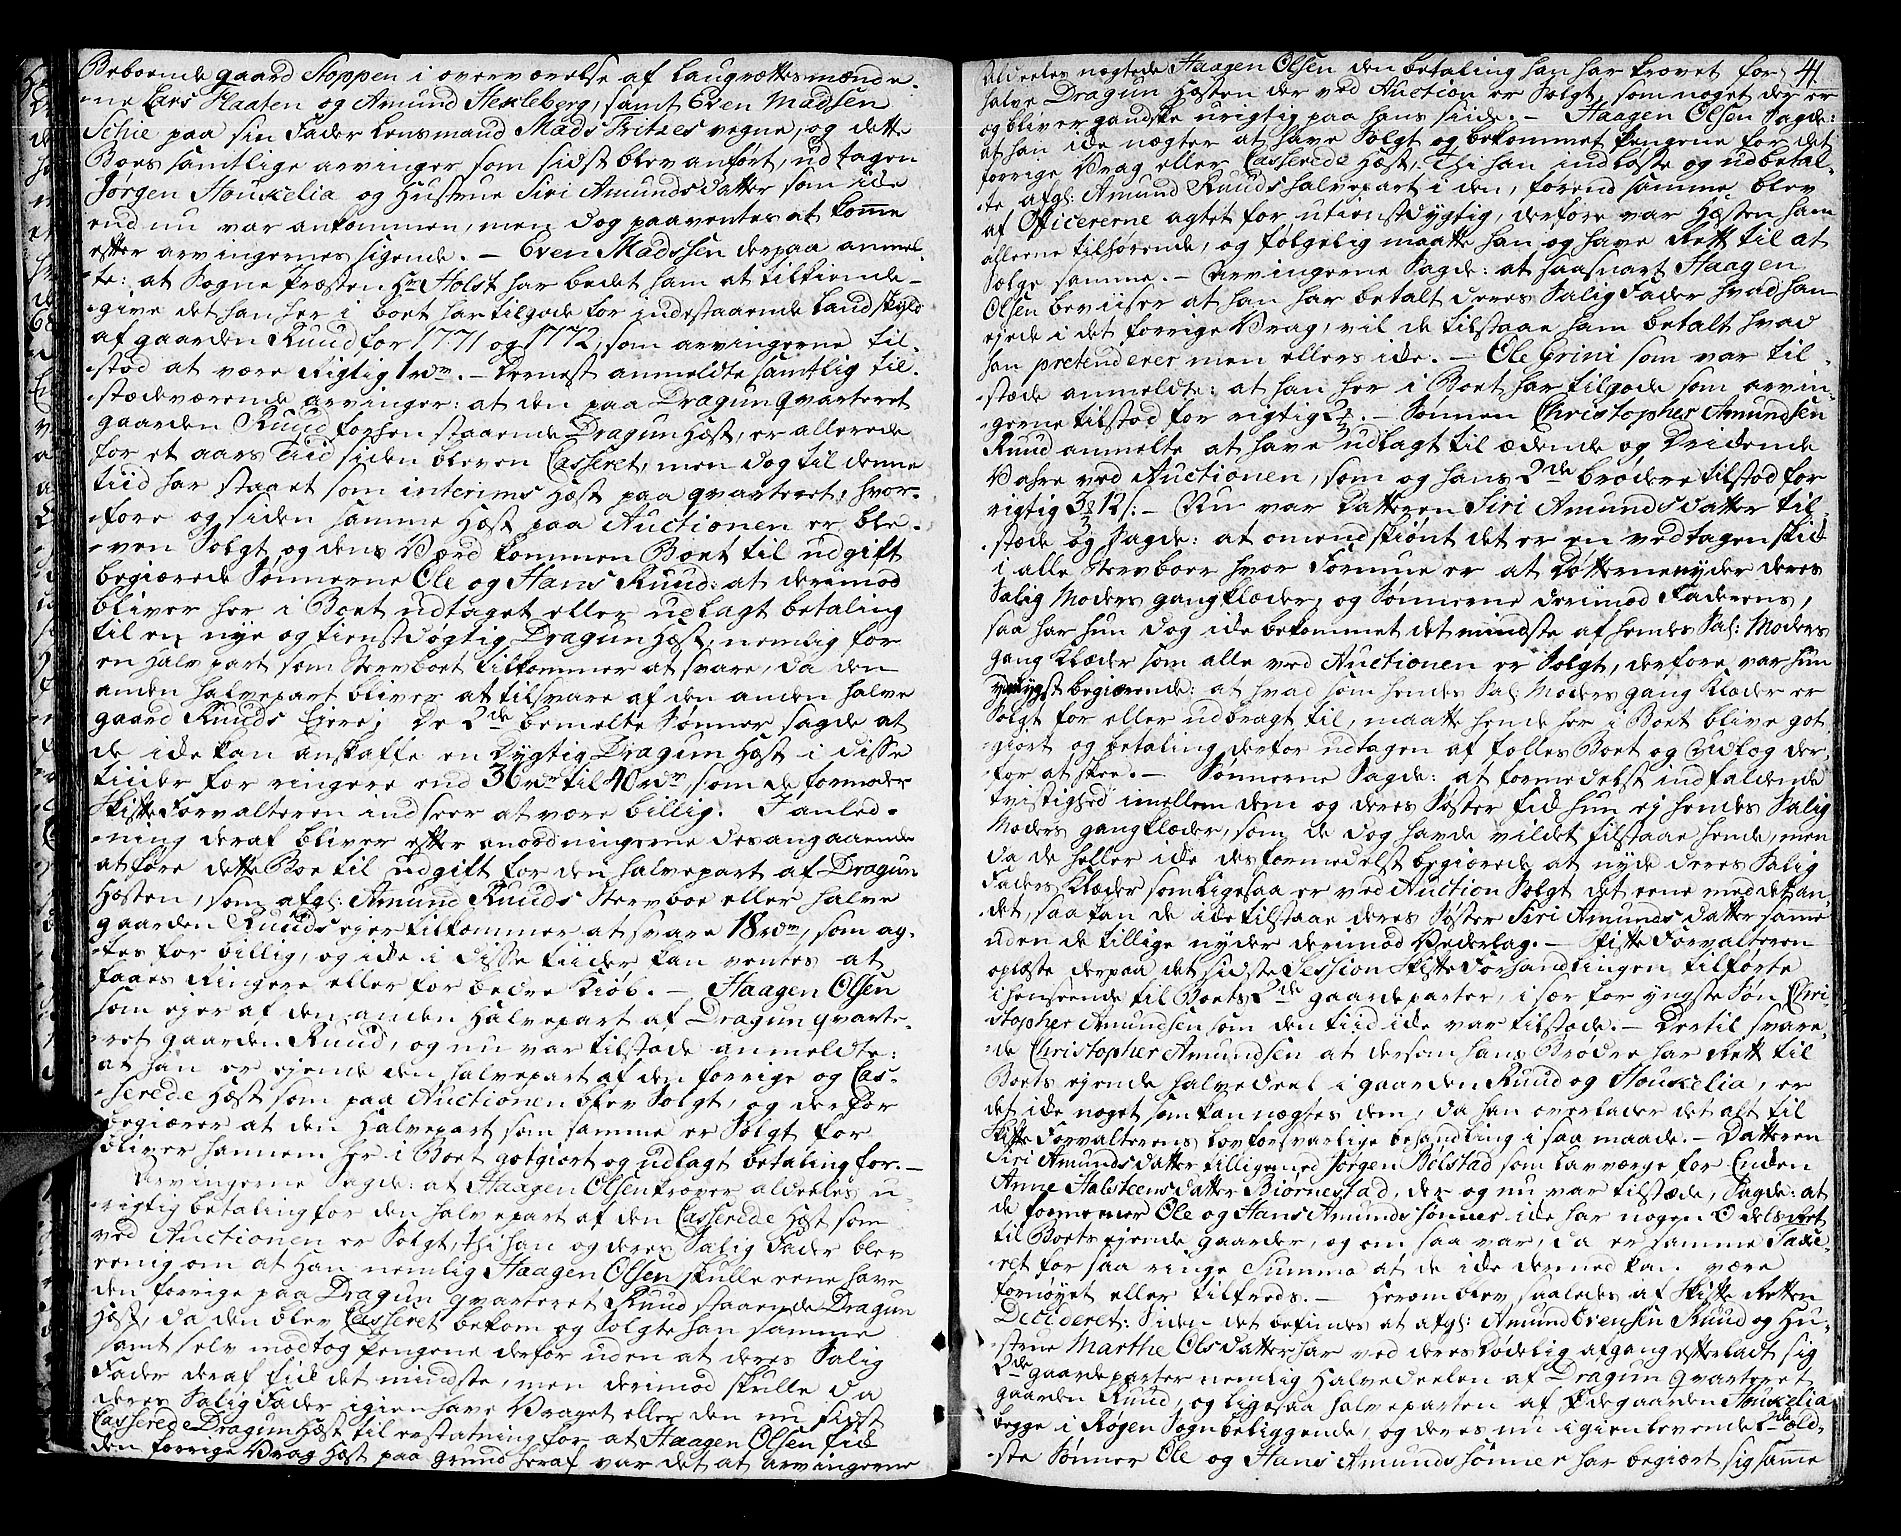 Beboende gaard Hoppen i overværelse af Laugrettesmænde-
ne Lars Flaaten og Amund Stexleberg, samt Even Madsen
Schie paa sin Fader Lensmand Mads Fritzes vegne, og dette
Boes samtlige arvinger som sidst blev anført, undtagen
Jørgen Houkelia og Hustrue Siri Amundsdatter som icke
end nu var ankommen, men dog paaventes at komme
efter arvingernes sigende. – Even Madssen derpaa anmel-
te: at Sogne Præsten Hr Holst har bedet ham at tilkiende-
give det han her i boet har tilgode for indestaaende Landskyld
af gaarden Ruud for 1771 og 1772, som arvingerne til-
stod at være Rigtig 1 rdr. – Dernest anmeldte samtlig til-
stædeværende arvinger: at den paa Dragun qvarteret
gaarden Ruud forhen staaende Dragun Hæst, er allerede
for et aars Tiid siden bleven Casseret, men dog til denne
tiid har staaet som interims Hæst paa qvarteret, hvor-
fore og siden samme Hæst paa Auctionen er ble-
ven Solgt og dens Værd kommen Boet til udgift
begiærede Sønnerne Ole og Hans Ruud: at derimod
bliver her i Boet udtaget eller udlagt betaling
til en nye og tienstdygtig Dragun Hæst, nemlig for
en Halv part som Stervboet tilkommer at svare, da den
anden halvepart bliver at tilsvare af den anden halve
gaard Ruuds Ejere; De 2de bemelte Sønner sagde at
de icke kan anskaffe en Dygtig Dragun Hæst i disse
tiider for ringere end 36 rdr til 40 rdr som de formoder
Skifte Forvalteren indseer at være billig. I anled-
ning deraf bliver efter anordningerne desangaaende
at føre dette Boe til udgift for den halvepart af Dragun
Hæsten, som afgl: Amund Ruuds Stervboe eller halve
gaarden Ruuds ejer tilkommer at svare 18 rdr, som ag-
tes for billig, og icke i disse tiider kan ventes at
faaes Ringere eller for bedre Kiøb. – Haagen Olsen
som ejer af den anden Halvepart af Dragun qvarte-
ret gaarden Ruud, og nu var tilstæde anmeldte:
at han er ejende den halvepart af den forrige og Cas-
serede Hæst som paa Auctionen blev Solgt, og derfor
begiærer at den Halvepart som samme er Solgt for
bliver hannem her i Boet gotgiort og udlagt betaling for. –
Arvingerne Sagde: at Haagen Olsen krover aldeeles u-
rigtig betaling for den halvepart af den Casserede Hæst som
ved Auctionen er Solgt, thi han og deres Salig Fader blev
eenig om at Han nemlig Haagen Olsen skulle eene have
den forrige paa Dragun qvarteret Ruud staaende Dragun
Hæst, da den blev Casseret bekom og Solgte han samme
samt selv modtog pengene derfor uden at deres Salig
Fader deraf fick det mindste, men derimod skulle da
deres Salig Fader igien have Vraget eller den nu sidst
Casserede Dragun Hæst til erstatning for at Haagen Olsen fick
den forrige Vrag Hæst paa grund heraf var det at arvingerne
41
Aldeeles nægtede Haagen Olsen den betaling han har krovet for
halve Dragun Hæsten der ved Auction er Solgt, som noget der er
og bliver gandske urigtig paa hans siide. – Haagen Olsen Sagde:
at han icke nægter at have Solgt og bekommet Pengene for det
forrige Vrag eller Casserede Hæst, Thi han indløste og udbetal-
te afgl: Amund Ruuds halvepart i den, førend samme blev
af Officererne agtet for utienstdygtig, derfore var Hæsten ham
alleene tilhørende, og følgelig maatte han og have Rett til at
Sælge samme. – Arvingerne Sagde: at saasnart Haagen
Olsen beviiser at han har betalt deres Salig Fader hvad han
ejede i det forrige Vrag, vil de tilstaae ham betalt hvad
han pretenderer men ellers icke. – Ole Grini som var til-
stæde anmeldte: at han her i Boet har tilgode som arvin-
gerne tilstod for rigtig . – Sønnen Christopher Amundsen
Ruud anmelte at have udlagt til ædende og Drickende
Vahre ved Auctionen, som og hans 2de brødere tilstod for
rigtig 3 12 s: – Nu var Datteren Siri Amundsdatter til-
stæde og Sagde: at omendskiønt det er en vedtagen skick
i alle Stervboer hvor Formue er at Døtterne nyder deres
Salig Moders gangklæder, og Sønnerne derimod Faderens,
saa har hun dog icke bekommet det mindste af hendes Sal: Moders
gang Klæder som alle ved Auctionen er Solgt, derfore var hun
ydmygst begiærende: at hvad som hendes Sal: Moders gang Klæder er
Solgt for eller udbragt til, maatte hende her i Boet blive got-
giort og betaling derfor udtagen af fælles Boet og Udlæg der-
for at skee. – Sønnerne Sagde: at formedelst indfaldende
tvistighed imellem dem og deres Søster fick hun ej hendes Salig
Moders gangklæder, som de dog havde vildet tilstaae hende, men
da de heller icke desformedelst begiærede at nyde deres Salig
Faders Klæder som ligesaa er ved Auction Solgt det eene med det an-
det, saa kan de icke tilstaae deres Søster Siri Amundsdatter same
uden de tillige nyder derimod Vederlag. – Skifte Forvalteren
oplæste derpaa det sidste Session Skifte Forhandlingen tilførte
i henseende til Boets 2de gaardeparter, i sær for yngste Søn Chri-
stopher Amundsen som den tiid icke var tilstæde. – Dertil svare-
de Christopher Amundsen at dersom hans Brødre har Rett til
Boets ejende halvedeel i gaarden Ruud og Houkelia, er
det icke noget som kan nægtes dem, da han overlader det alt til
Skifte Forvalterens lovforsvarlige behandling i saa maade. – Datteren
Siri Amundsdatter tilligemed Jørgen Bølstad som Lavværge for Enken
Anne Halsteensdatter Biørnestad, der og nu var tilstæde, Sagde: at
de formener Ole og Hans Amundssønner icke har nogen Odelsrett
til Boets ejende gaarder, og om saa var, da er samme Taxe-
ret for saa ringe Summa at de icke dermed kan være
fornøyet eller tilfreds. – Herom blev saaledes af Skifte Retten
Decideret: Siden det befindes at afgl: Amund Evensen Ruud og Hu-
strue Marthe Olsdatter har ved deres Dødelig afgang efterladt sig
2de gaardeparter nemlig Halvedeelen af Dragun qvarteret
gaarden Ruud, og ligesaa halveparten af Ødegaarden Houkelia
begge i Røgen Sogn beliggende, og deres nu igienlevende 2de æld-
ste Sønner Ole og Hans Amundssønner har begiært sig samme